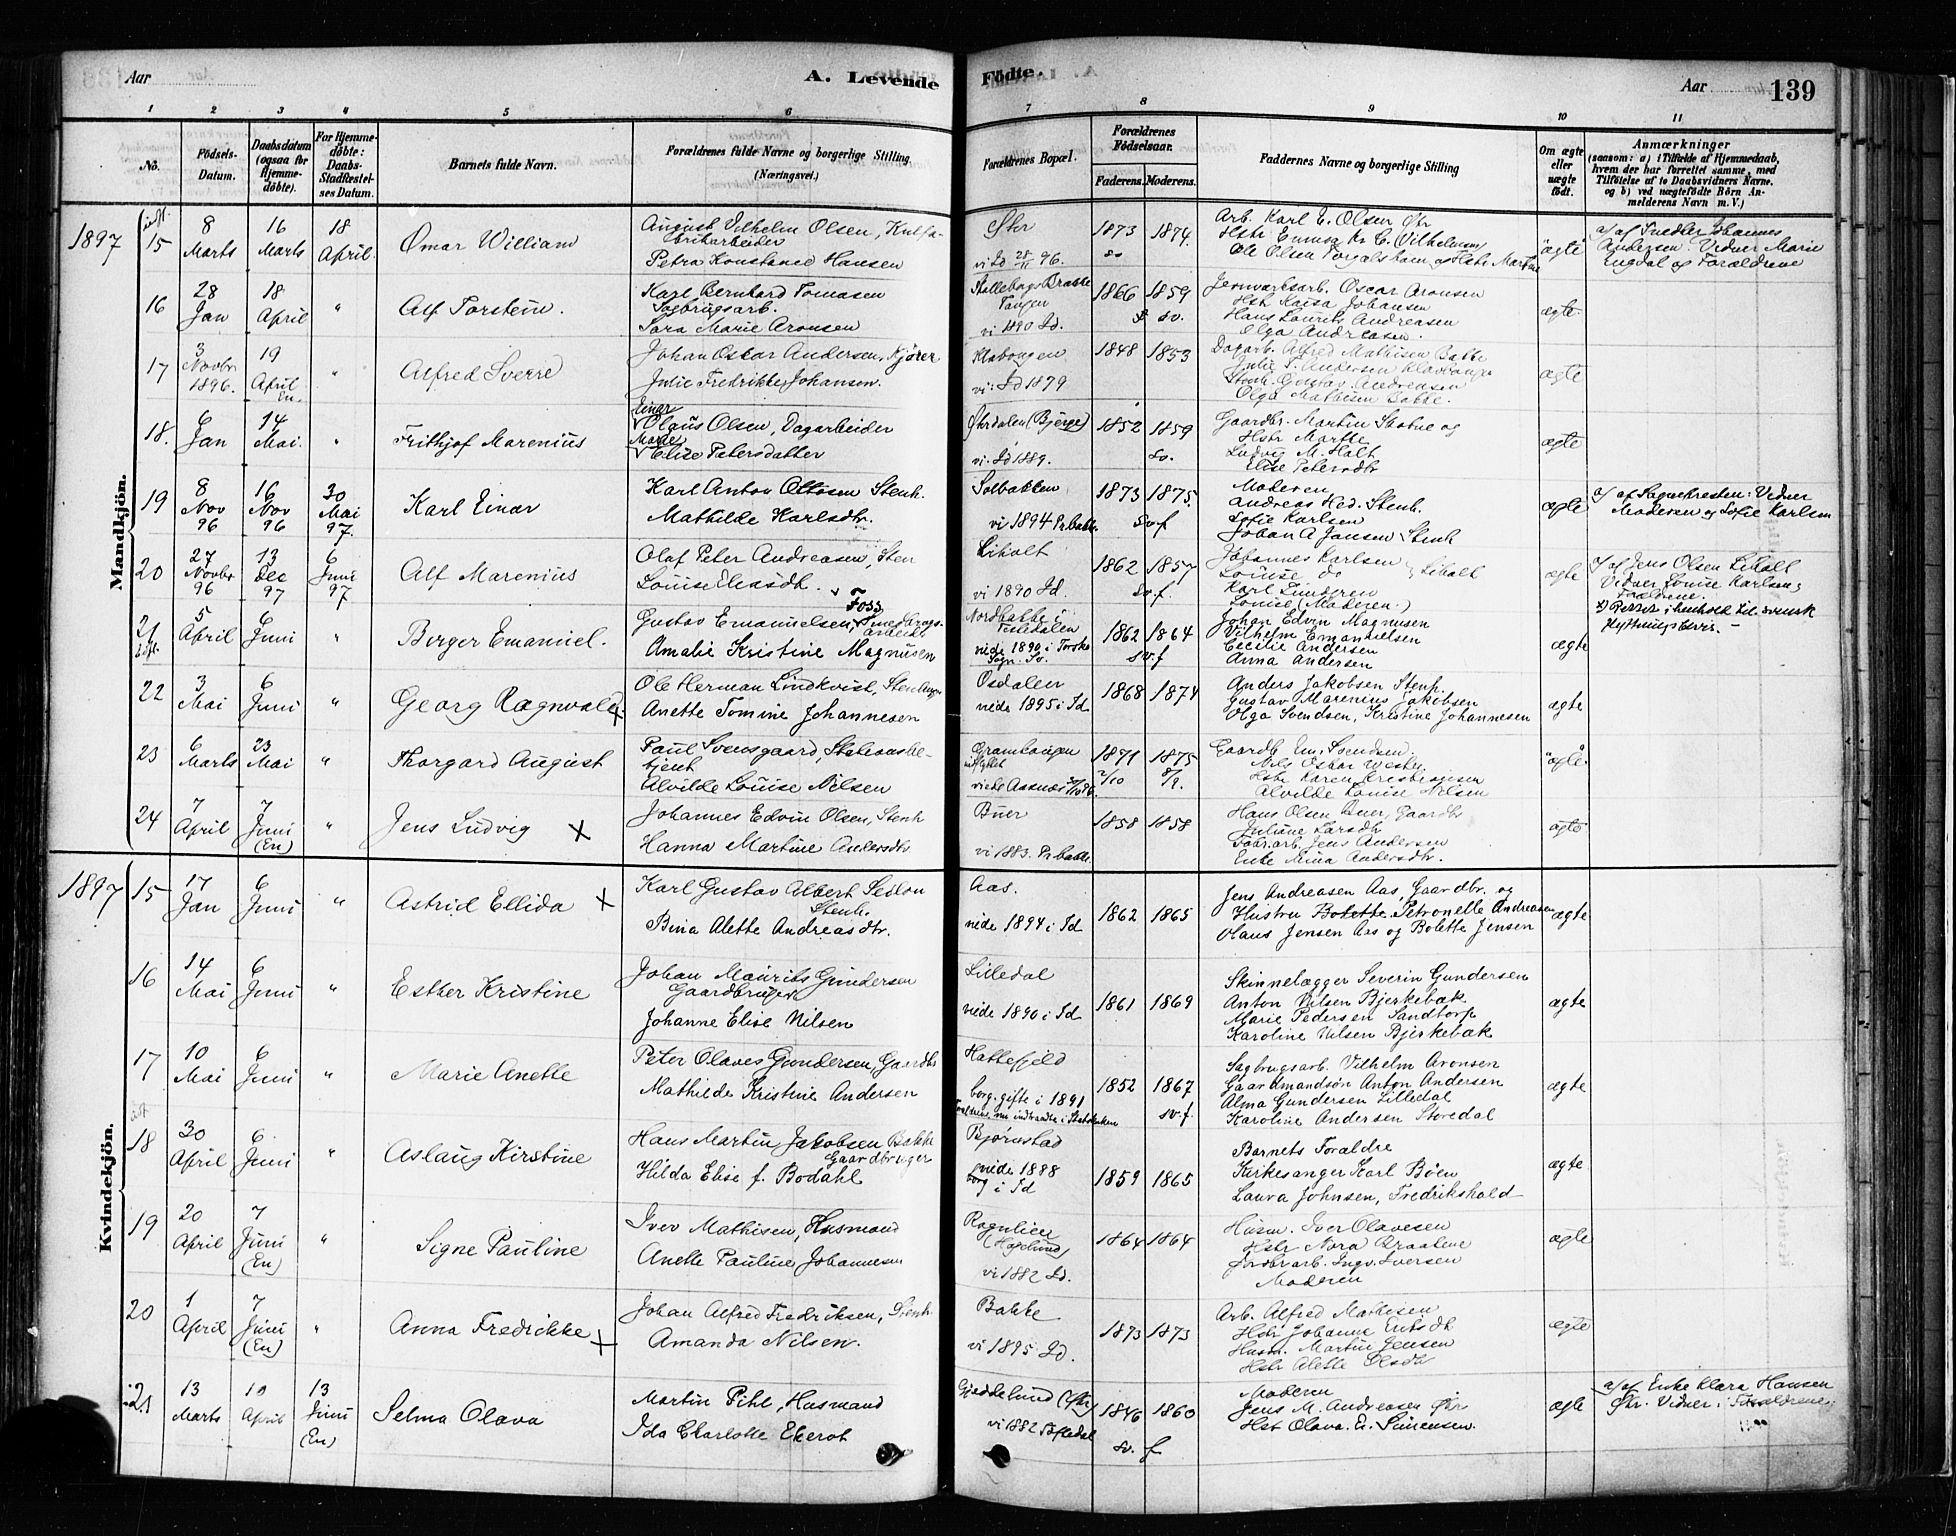 Aar
A. Levende
Födte.
Aar
139
1 2 3 4 5 6 7 8 9 10 11
No.
Födsels-
Datum.
Daabsdatum
(ogsaa for
Hjemme-
döbte).
For Hjemme-
döbte:
Daabs-
Stadfæstel-
ses Datum.
Barnets fulde Navn.
Forældrenes fulde Navne og borgerlige Stilling
(Næringsvei.)
Forældrenes Bopæl.
Forældrenes
Födselsaar.
Faderens. Moderens.
Faddernes Navne og borgerlige Stilling
Om ægte
eller
uægte
födt.
Anmærkninger
(saasom: a) i Tilfælde af Hjemmedaab,
hvem der har forrettet samme, med
Tilföielse af to Daabsvidners Navne.
og b) ved uægtefödte Börn An-
melderens Navn m. V.)
Mandkjön.
1897
15
8 Marts
16 Marts
18 April
Omar William
August Vilhelm Olsen,
Petra Konstance Hansen
1873 1874
Arb. Karl E. Olsen
ægte
Andersen Vidner Marie
Engdal og Forældrene
16
28 Jan
18 April
"
Alf Torstein.
Karl Bernhard Tomasen
Sagbrugsarb.
Sara Marie Aronsen
Tangen
vi 1890 Id.
1866 1859
Jernværksarb. Oscar Aronsen
Hstr Kaisa Johansen
Hans Laurits Andreasen
Olga Andreasen.
ægte
17
3 Novbr 1896.
19 April En.
"
Alfred Sverre
Johan Oskar Andersen, Kjörer
Julie Fredrikke Johansen.
vi: Id 1879
1848 1853
Dagarb. Alfred Mathisen Bakke
Julie F. Andersen
Stenh. Gustav Andreasen
Olga Mathisen Bakke.
ægte
18.
6 Jan
14 Mai.
"
Frithjof Marenius
Einar
Olaus Olsen, Dagarbeider
Elise Petersdatter
(Bjerge)
vi. Id 1889.
1852 1859
Sv.
Gaardbr. Martin Skotne og
Hstr Marthe
Ludvig M. Holt
Elise Petersdtr
ægte
19
8 Nov 96
16 Nov 96
30 Mai 97.
Karl Einar
Karl Anton Ottosen Stenh.
Mathilde Karlsdtr.
Solbakken
vi 1894 Pr.bakke.
1873 1875
Sv f
Moderen
Andreas Hed. Stenh.
Sofie Karlsen
Johan A Jansen Stenh
ægte
Vidner
Moderen og Sofie Karlsen
20
27 Novbr 96
13 Dec 97
6 Juni 97
Alf Marenius
Olaf Peter Andreasen, Sten
Louise
Liholt
vi 1890 Id.
1862 1857
Sv. f.
Johannes Karlsen
Louise do
Liholt
Karl Lunderen
Louise (Moderen.)
ægte
a) af Jens Olsen Liholt
Vidner Louise Karlsen,
Forældrene.
21
5 April
6 Juni
"
Birger Emanuel.
Foss
Gustav Emanuelsen,
Amalie Kristine Magnusen
Nordbakke i
Tistedalen
viede 1890 i Torsko
Sogn. Sv.
1862 1864
sv. f
Johan Edvin Magnusen
Vilhelm Emanuelsen
Cecilie Andersen
Anna Andersen
ægte
22
3 Mai
6 Juni
"
Georg Ragnvald x
Ole Herman Lindkvist,
Anette Tomine Johannesen
Osdalen
viede 1895 i Id
1868 1874
Anders Jakobsen Stenh.
Gustav Marenius Jakobsen
Olga Svendsen, Kristine Johannesen
ægte
23
6 Marts
23 Mai
"
Thorgard August
Paul Svensgaard, Stationsbe-
tjent
Alvilde Louise Nilsen
1871 1875
2/10 8/9.
Gaardb Em. Svendsen.
Nils Oskar
Hstr Karen Kristiansen
Alvilde Louise Nilsen
ægte
24
7 April
7 Juni (En)
"
Jens Ludvig x
Johannes Edvin Olsen, Stenh
Hanna Martine Andersdtr
Buer
vi 1883. Pr.bakke.
1858 1858
Hans Olsen Buer, Gaardbr
Juliane Larsdtr
Jens Andersen
Enke Mina Andersdtr.
ægte
Kvindekjön.
1897
15
17 Jan
6 Juni
"
Astrid Ellida x
Karl Gustav Albert Seslon
Stenh.
Bina Alette Andreasdtr.
Aas.
viede 1894 i Id
1862 1865
Jens Andreasen Aas, Gaardbr. og
Hustru Bolette Petronelle Andreasen
Olaus Jensen Aas og Bolette Jensen
ægte
16
14 Mai
6 Juni
"
Esther Kristine
Johan Maurits Gundersen
Gaardbruger
Johanne Elise Nilsen
Lilledal
viede 1890 i Id
1861 1869
Skinnelægger Severin Gundersen
Anton Nilsen Bjerkebæk
Marie Pedersen Sandtorp
Karoline Nilsen Bjerkebæk
ægte
17
10 Mai
6 Juni
"
Marie Anette
Peter Olaves Gundersen, Gaardbr
Mathilde Kristine Andersen
Hattefjeld
borg. gifte i 1891
1852 1867
sv. f.
Sagbrugsarb. Vilhelm Aronsen
Gaardmandsön Anton Andersen
Alma Gundersen Lilledal
Karoline Andersen Storedal
ægte
18
30 April
6 Juni
"
Aslaug Kirstine
Hans Martin Jakobsen Bakke
Gaardbruger
Hilda Elise f. Bodahl
Bjørnstad
viede 1888
borg i Id
1859 1865
Barnets Forældre
Kirkesanger Karl Böen
Laura Johnsen, Fredrikshald
ægte
19
20 April
7 Juni (En)
"
Signe Pauline
Iver Mathisen, Husmand
Anette Pauline Johannesen
vi 1882 Id.
1864 1864
Husm. Iver Olavesen
Hstr Nora Braatene
Ingv. Iversen
Moderen
ægte
20
1 April
7 Juni (En)
"
Anna Fredrikke x
Johan Alfred Fredriksen, Stenh
Amanda Nilsen.
Bakke
vi 1895 Id.
1873 1873
Arb. Alfred Mathisen
Hstr Johanne
Husm. Martin Jensen
Hstr Alette Olsdtr
ægte
21
13 Marts
19 April
13 Juni (En)
Selma Olava
Martin Pihl, Husmand
Ida Charlotte Ekerot
vi 1882
1846 1860
sv. f.
Moderen
Jens M. Andreasen
Hstr Olava E. Simensen.
ægte
a) af Enke Klara Hansen
Vidner: Forældrene